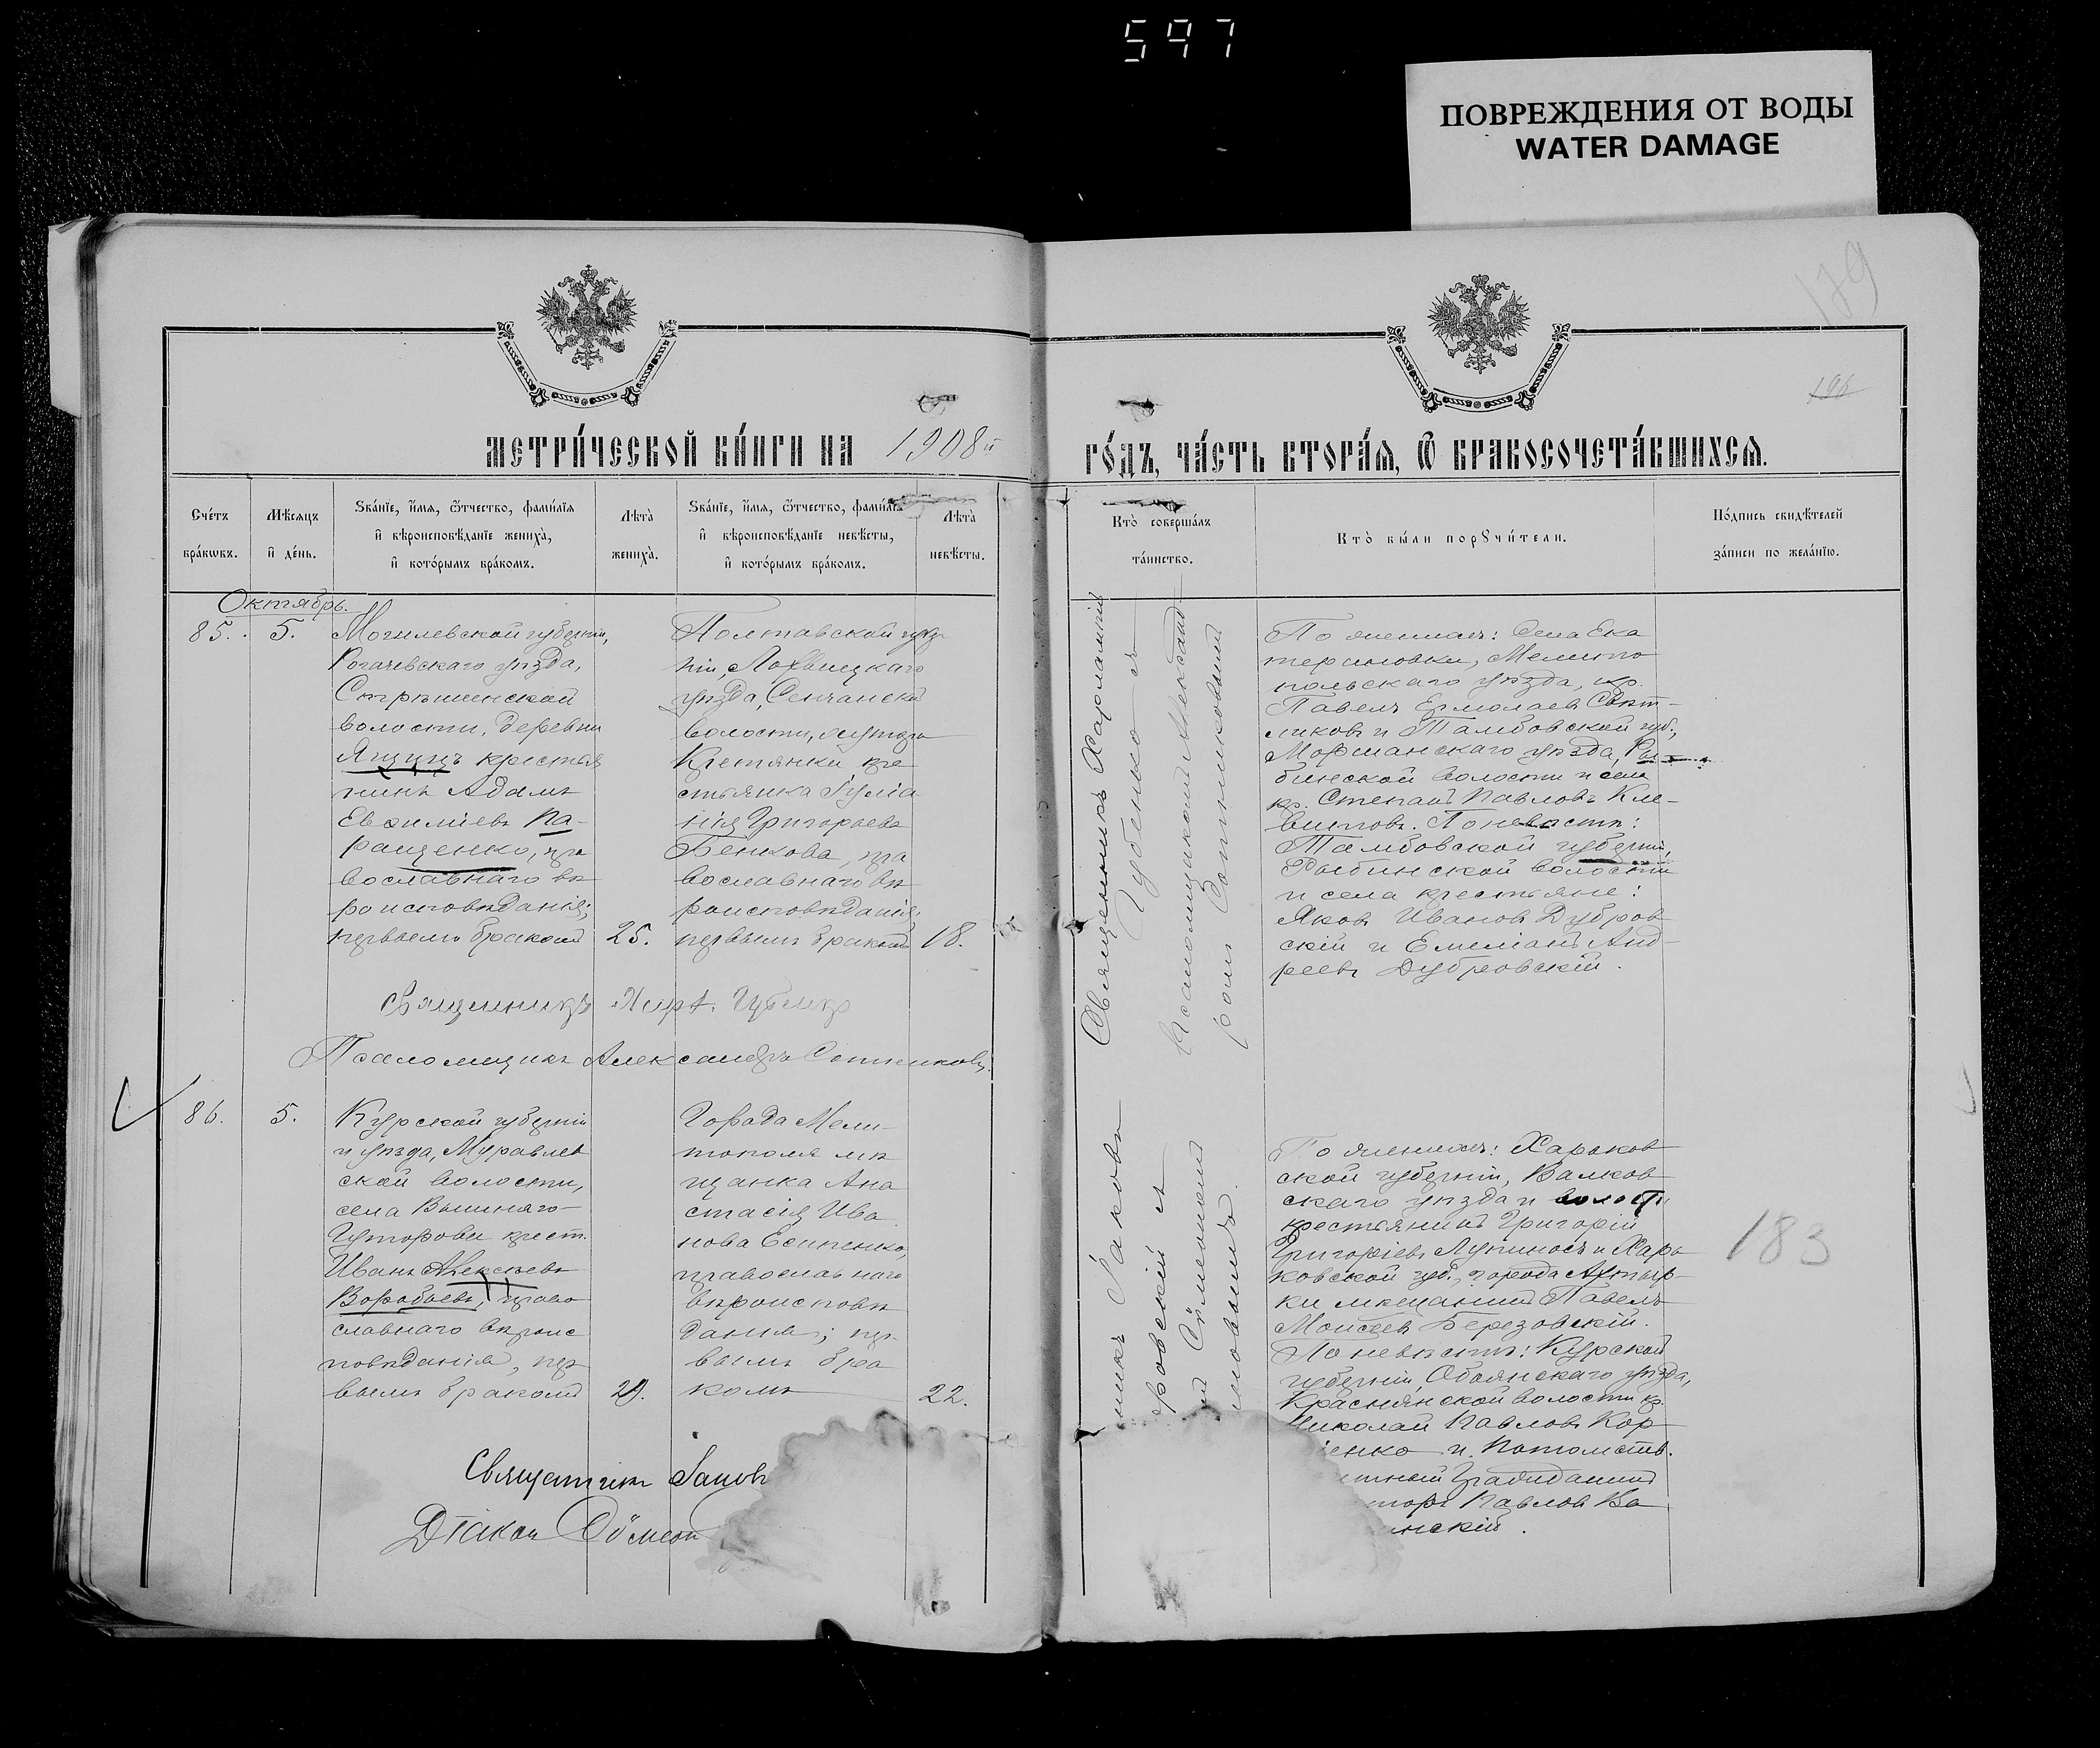 597
ПОВРЕЖДЕНИЯ ОТ ВОДЫ
WATER DAMAGE
179
196
МЕТРИ́ЧЕСКОЙ КНИ́ГИ НА 1908й
ГО́ДЪ, ЧА́СТЬ ВТОРА́Я, Ѿ БРАКОСОЧЕТА́ВШИХСЯ.
Сче́тъ бра́кѡвъ.
Мѣ́сяцъ и҆ де́нь.
Зва́нїе, и҆́мя, ѻ҆́тчество, фами́лїя
и҆ вѣроисповѣ́данїе жениха̀,
и҆ кото́рымъ бра́комъ.
Лѣта̀ жениха̀.
Зва́нїе, и҆́мя, ѻ҆́тчество, фами́лїя
и҆ вѣроисповѣ́данїе невѣ́сты,
и҆ кото́рымъ бра́комъ.
Лѣта̀ невѣ́сты.
Кто̀ соверша́лъ
та́инство.
Кто̀ бы́ли порꙋчи́тели.
По́дпись свидѣ́телей
за́писи по жела́нїю.
Октябрь.
85.
5.
Могилевской губерніи,
Рогачевскаго уѣзда,
Стрѣшенской
волости, деревни
Ящицъ крестья
нинъ Адамъ
Евѳиміевъ Па-
ращенко, пра
вославнаго вѣ
роисповѣданія;
первымъ бракомъ
25.
Полтавской губер
ніи, Лохвицкаго
уѣзда, Сенчанской
волости, хутора
кре
стьянка Іуліа
нія Григорьева
Бенкова, пра
вославнаго вѣ
роисповѣданія;
первымъ бракомъ
18.
Священникъ Харлампій
Губенко съ
псаломщикомъ Александ-
ромъ Сотниковымъ
По женихѣ: Села Ека
териновки, Мелито
польскаго уѣзда, кр.
Павелъ Ермолаевъ
и Тамбовской губ.,
Моршанскаго уѣзда, Ры-
бинской волости и села
кр. Степанъ Павловъ Кле-
вцовъ. По невѣстѣ:
Тамбовской губерніи,
Рыбинской волости
и села крестьяне:
Яковъ Ивановъ Дубров
скій и Емеліанъ Анд-
реевъ Дубровскій.
Священникъ Харл. Губенко
Псаломщикъ Александръ Сотниковъ.
86.
5.
Курской губерніи
и уѣзда, Муравлев
ской волости,
села Вышняго-
Гуторова крест.
Иванъ Алексѣевъ
Воробьевъ, право
славнаго вѣроис
повѣданія, пер
вымъ бракомъ
29.
Города Мели-
тополя мѣ
щанка Ана
стасія Ива
нова Есипенко,
православнаго
вѣроисповѣ
данія; пер-
вымъ бра
комъ
22.
никъ Іаковъ
ровскій съ
Сѵмеономъ
новымъ.
По женихѣ: Харьков
ской губерніи, Валков
скаго уѣзда и волости
крестьянинъ Григорій
Григоріевъ и Харь
ковской губ., города Ахтыр-
ки мѣщанинъ Павелъ
Моисеевъ Березовскій.
По невѣстѣ: Курской
губерніи, Обоянскаго уѣзда,
Краснянской волости кр.
Николай Павловъ Кор
енко и Потомств.
гражданинъ
Павловъ Ва
нскій.
183
Священникъ Іаковъ
Діаконъ Сѵмеон